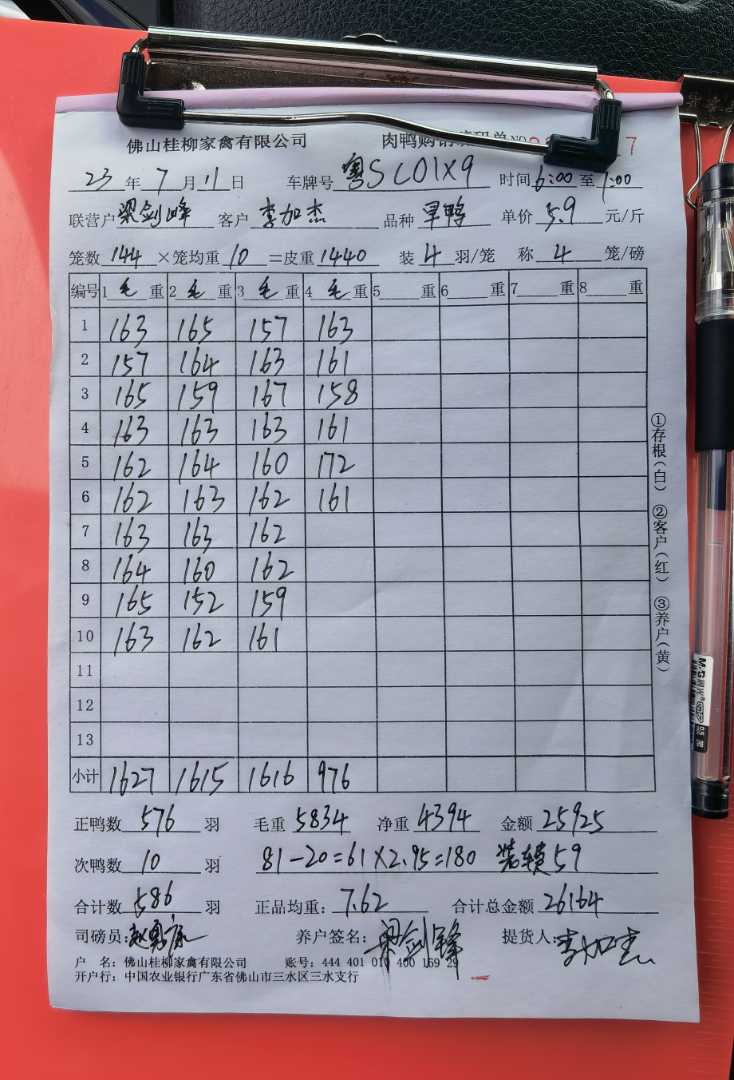 佛山桂柳家禽有限公司 肉鸭购销 码单 NO 7
23 年 7 月 11 日 车牌号 粤SC01X9 时间 6:00 至 7:00
联营户 梁剑峰 客户 李加杰 品种 旱鸭 单价 5.9 元/斤
笼数 144 ×笼均重 10 =皮重 1440 装 4 羽/笼 称 4 笼/磅
编号 1 毛 重 2 毛 重 3 毛 重 4 毛 重 5 重 6 重 7 重 8 重
1 163 165 157 163
2 157 164 163 161
3 165 159 167 158
4 163 163 163 161
5 162 164 160 172
6 162 163 162 161
7 163 163 162
8 164 160 162
9 165 152 159
10 163 162 161
11
12
13
小计 1627 1615 1616 976
正鸭数 576 羽 毛重 5834 净重 4394 金额 25925
次鸭数 10 羽 81-20=61×2.95=180 装轿59
合计数 586 羽 正品均重: 7.62 合计总金额 26164
司磅员: 养户签名: 梁剑锋 提货人: 李加杰
户 名: 佛山桂柳家禽有限公司 账号: 444 401 010 400 169 29
开户行: 中国农业银行广东省佛山市三水区三水支行
①存根(白) ②客户(红) ③养户(黄)
M&G
0.5